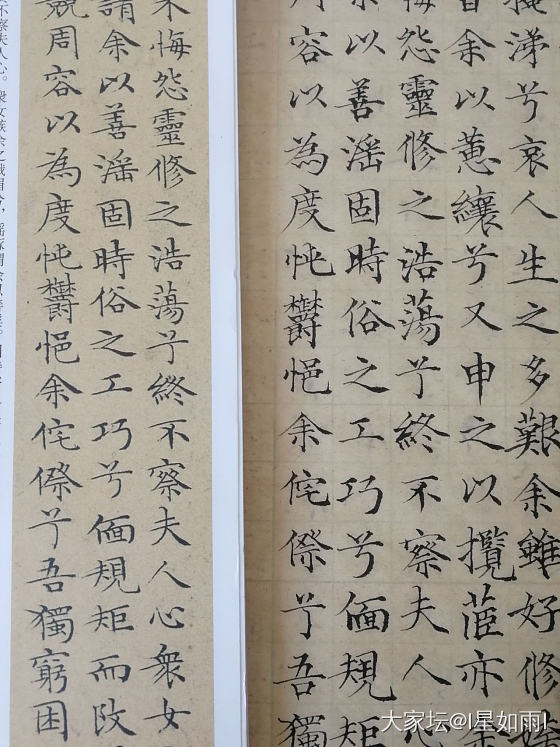 涕兮哀人生之多艱余雖好修
余以蕙纕兮又申之以攬茝亦余
悔怨靈修之浩蕩兮終不察夫人心
余以善滛固時俗之工巧兮偭規矩
周容以為度忳鬱悒余侘傺兮吾獨
不悔怨靈修之浩蕩兮終不察夫人心衆女
謂余以善滛固時俗之工巧兮偭規矩而改
競周容以為度忳鬱悒余侘傺兮吾獨窮困
不察夫人心。衆女嫉余之蛾眉兮，謠諑謂余以善淫。
大家坛@I星如雨I